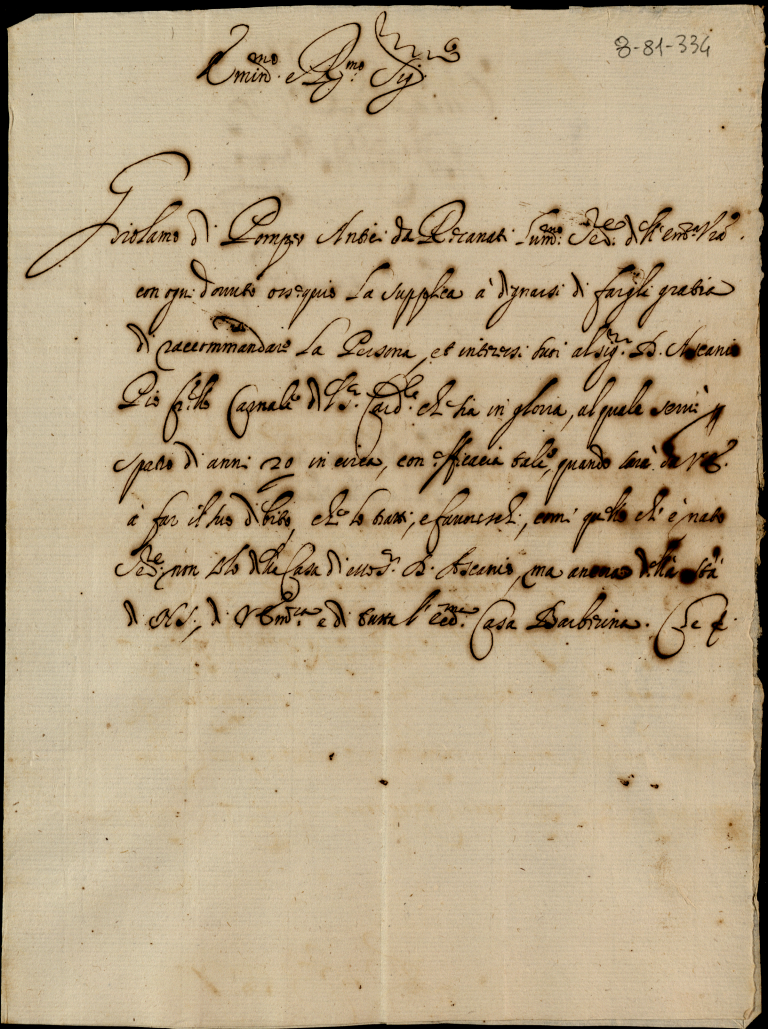 8-81-334
Emin.mo e R.mo Sig.re
Girolamo di Pompeo Antici da Recanati hum.mo Ser.e dell'em.a V.ra
con ogni dovuto ossequio La supplica à degnarsi di fargli gratia
di raccommandare La Persona, et interessi suoi al sig.r D. Ascanio
Pio fr.ello Carnale del S.r Card.le che sia in gloria, al quale servì
spatio di anni 20 in circa, con efficacia tale, quando sarà da V.E.
à far il suo debito, che lo tratti, e favorischi, come quello che è nato
Ser.e non solo della Casa di esso S.r D. Ascanio, ma ancora della S.tà
di N.S., di V. Em.za e di tutta l'ecc.ma Casa Barberina. Che e.